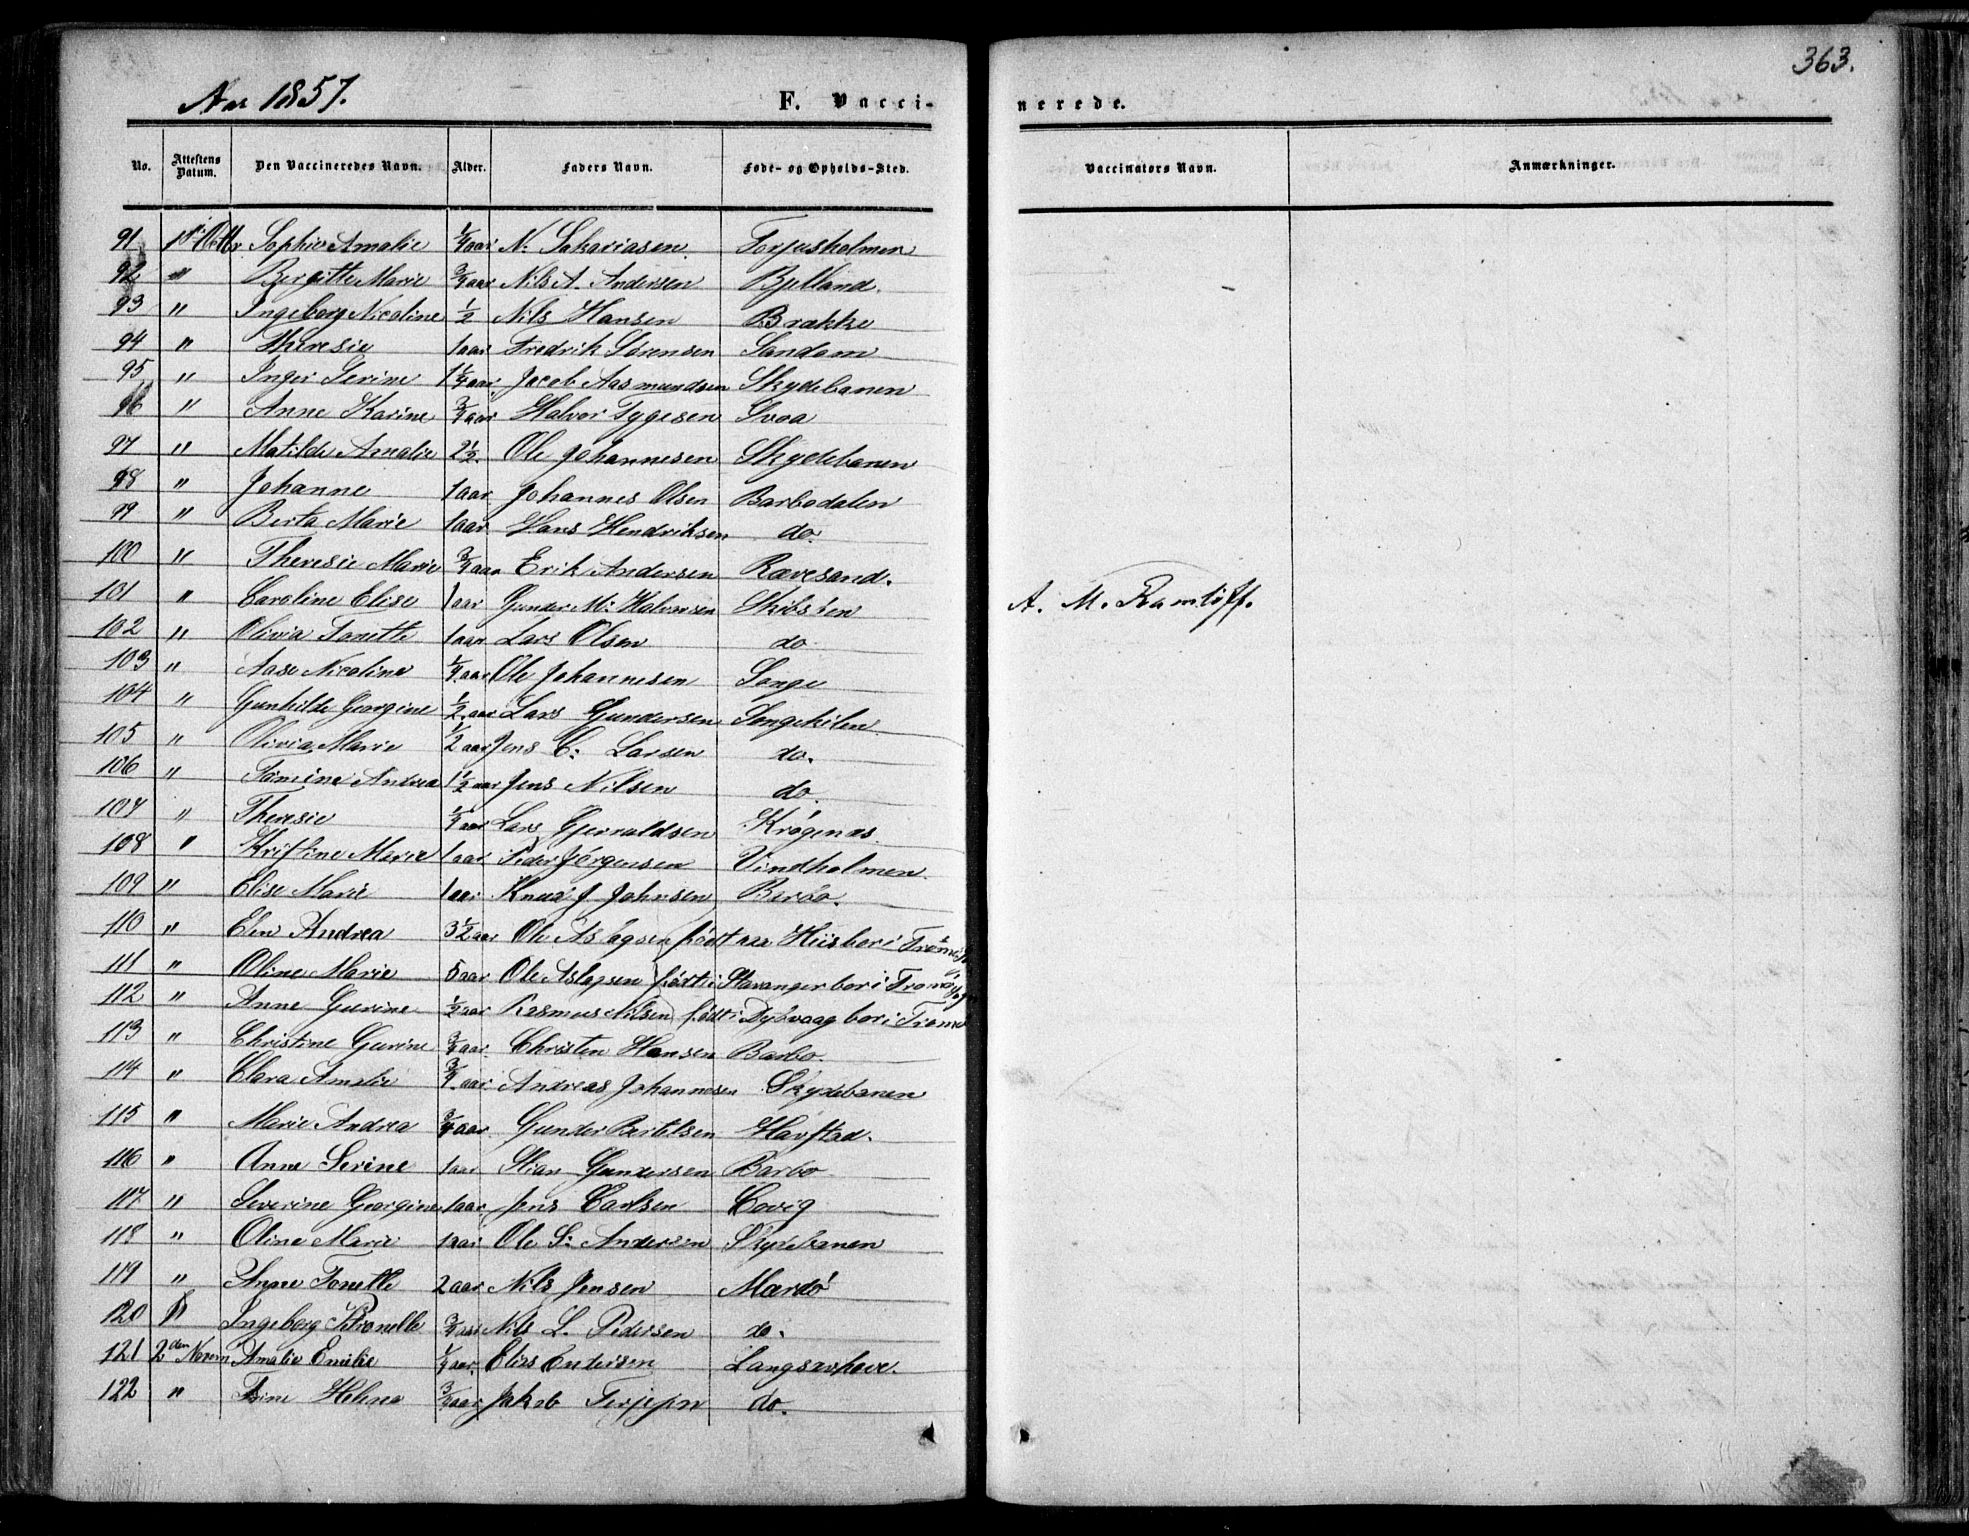 363.
Aar 1857. F. Vacci-nerede.
No. Attestens Datum. Den Vaccineredes Navn. Alder. Faders Navn. Føde- og Opholds-Sted. Vaccinators Navn. Anmærkninger.
91 1ste Octbr Sophie Amalie 1/4 aar N. Sakariasen Torjusholmen
92 " Bergitte Marie 3/4 aar Nils A. Andersen Bjelland.
93 " Ingeborg Nicoline 1/2 Nils Hansen Brække
94 " Theresie 1 aar Fredrik Sørensen Sandam
95 " Inger Serine 1 1/4 aar Jacob Aasmundsen Skydebanen
96 " Anne Karine 3/4 aar Halvor Tygesen Svoa
97 " Matilde Amalie 2 1/2 Ole Johannesen Skydebanen
98 " Johanne 1 aar Johannes Olsen Barbodalen
99 " Berta Marie 1 aar Hans Hendriksen do.
100 " Theresie Marie 3/4 aar Erik Andersen Rævesand.
101 " Caroline Elise 1 aar Gunder M: Halvorsen Skibsøen A. M. Ramløff.
102 " Olivia Tonette 1 aar Lars Olsen do
103 " Aase Nicoline 1/4 aar Ole Johannesen Songe
104 " Gunhilde Georgine 1/2 aar Lars Gundersen Songekilen
105 " Olivia Marie 1/2 aar Jens C: Larsen do.
106 " Tomine Andrea 1 1/2 aar Jens Nilsen do.
107 " Theresie 1/4 aar Lars Gjeruldsen Krøgenæs.
108 " Kristine Marie 1 aar Peder Jørgensen Vindholmen
109 " Elise Marie 1 aar Knud J Johnsen Barbo.
110 " Elen Andrea 3 1/2 aar Ole Aslagsen født paa Hiis bor i Tromø
111 " Oline Marie 5 aar Ole Aslagsen født i Stavanger bor i Tromø Sogn
112 " Anne Gurine 1/2 aar Rasmus Nilsen født i Dybvaag bor i Tromø
113 " Christine Gurine 3/4 aar Christen Hansen Barbo.
114 " Clara Amalie 3/4 aar Andreas Johannesen Skydebanen
115 " Marie Andrea 3/4 aar Gunder Bertelsen Havstad.
116 " Anne Serine 1 aar Stian Gundersen Barbo
117 " Severine Georgine 1 aar Jens Carlsen Covig
118 " Oline Marie 1 aar Ole S: Andersen Skydebanen
119 " Anne Tonette 2 aar Nils Jensen Mærdø
120 " Ingeborg Petronelle 3/4 aar Nils L. Pedersen do.
121 2den Novem Amalie Emilie 1/4 aar Elias Endersen
122 " Helene 3/4 aar Jakob do.